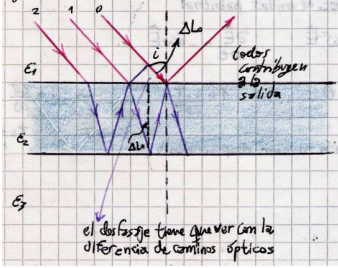 2 1 0
ΔL₀
i
todos
contribuyen
a la
salida
ε₁
ΔL₁
ε₂
ε₃
el desfasaje tiene que ver con la
diferencia de caminos ópticos